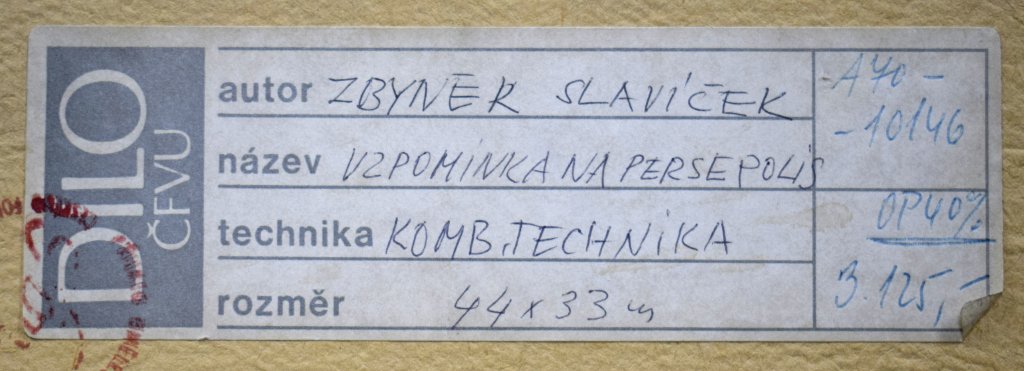 DÍLO
ČFVU
autor ZBYNEK SLAVÍČEK
název VZPOMÍNKA NA PERSEPOLIS
technika KOMB. TECHNIKA
rozměr 44 x 33
A70 -
- 10146
OP40%
3.125,-